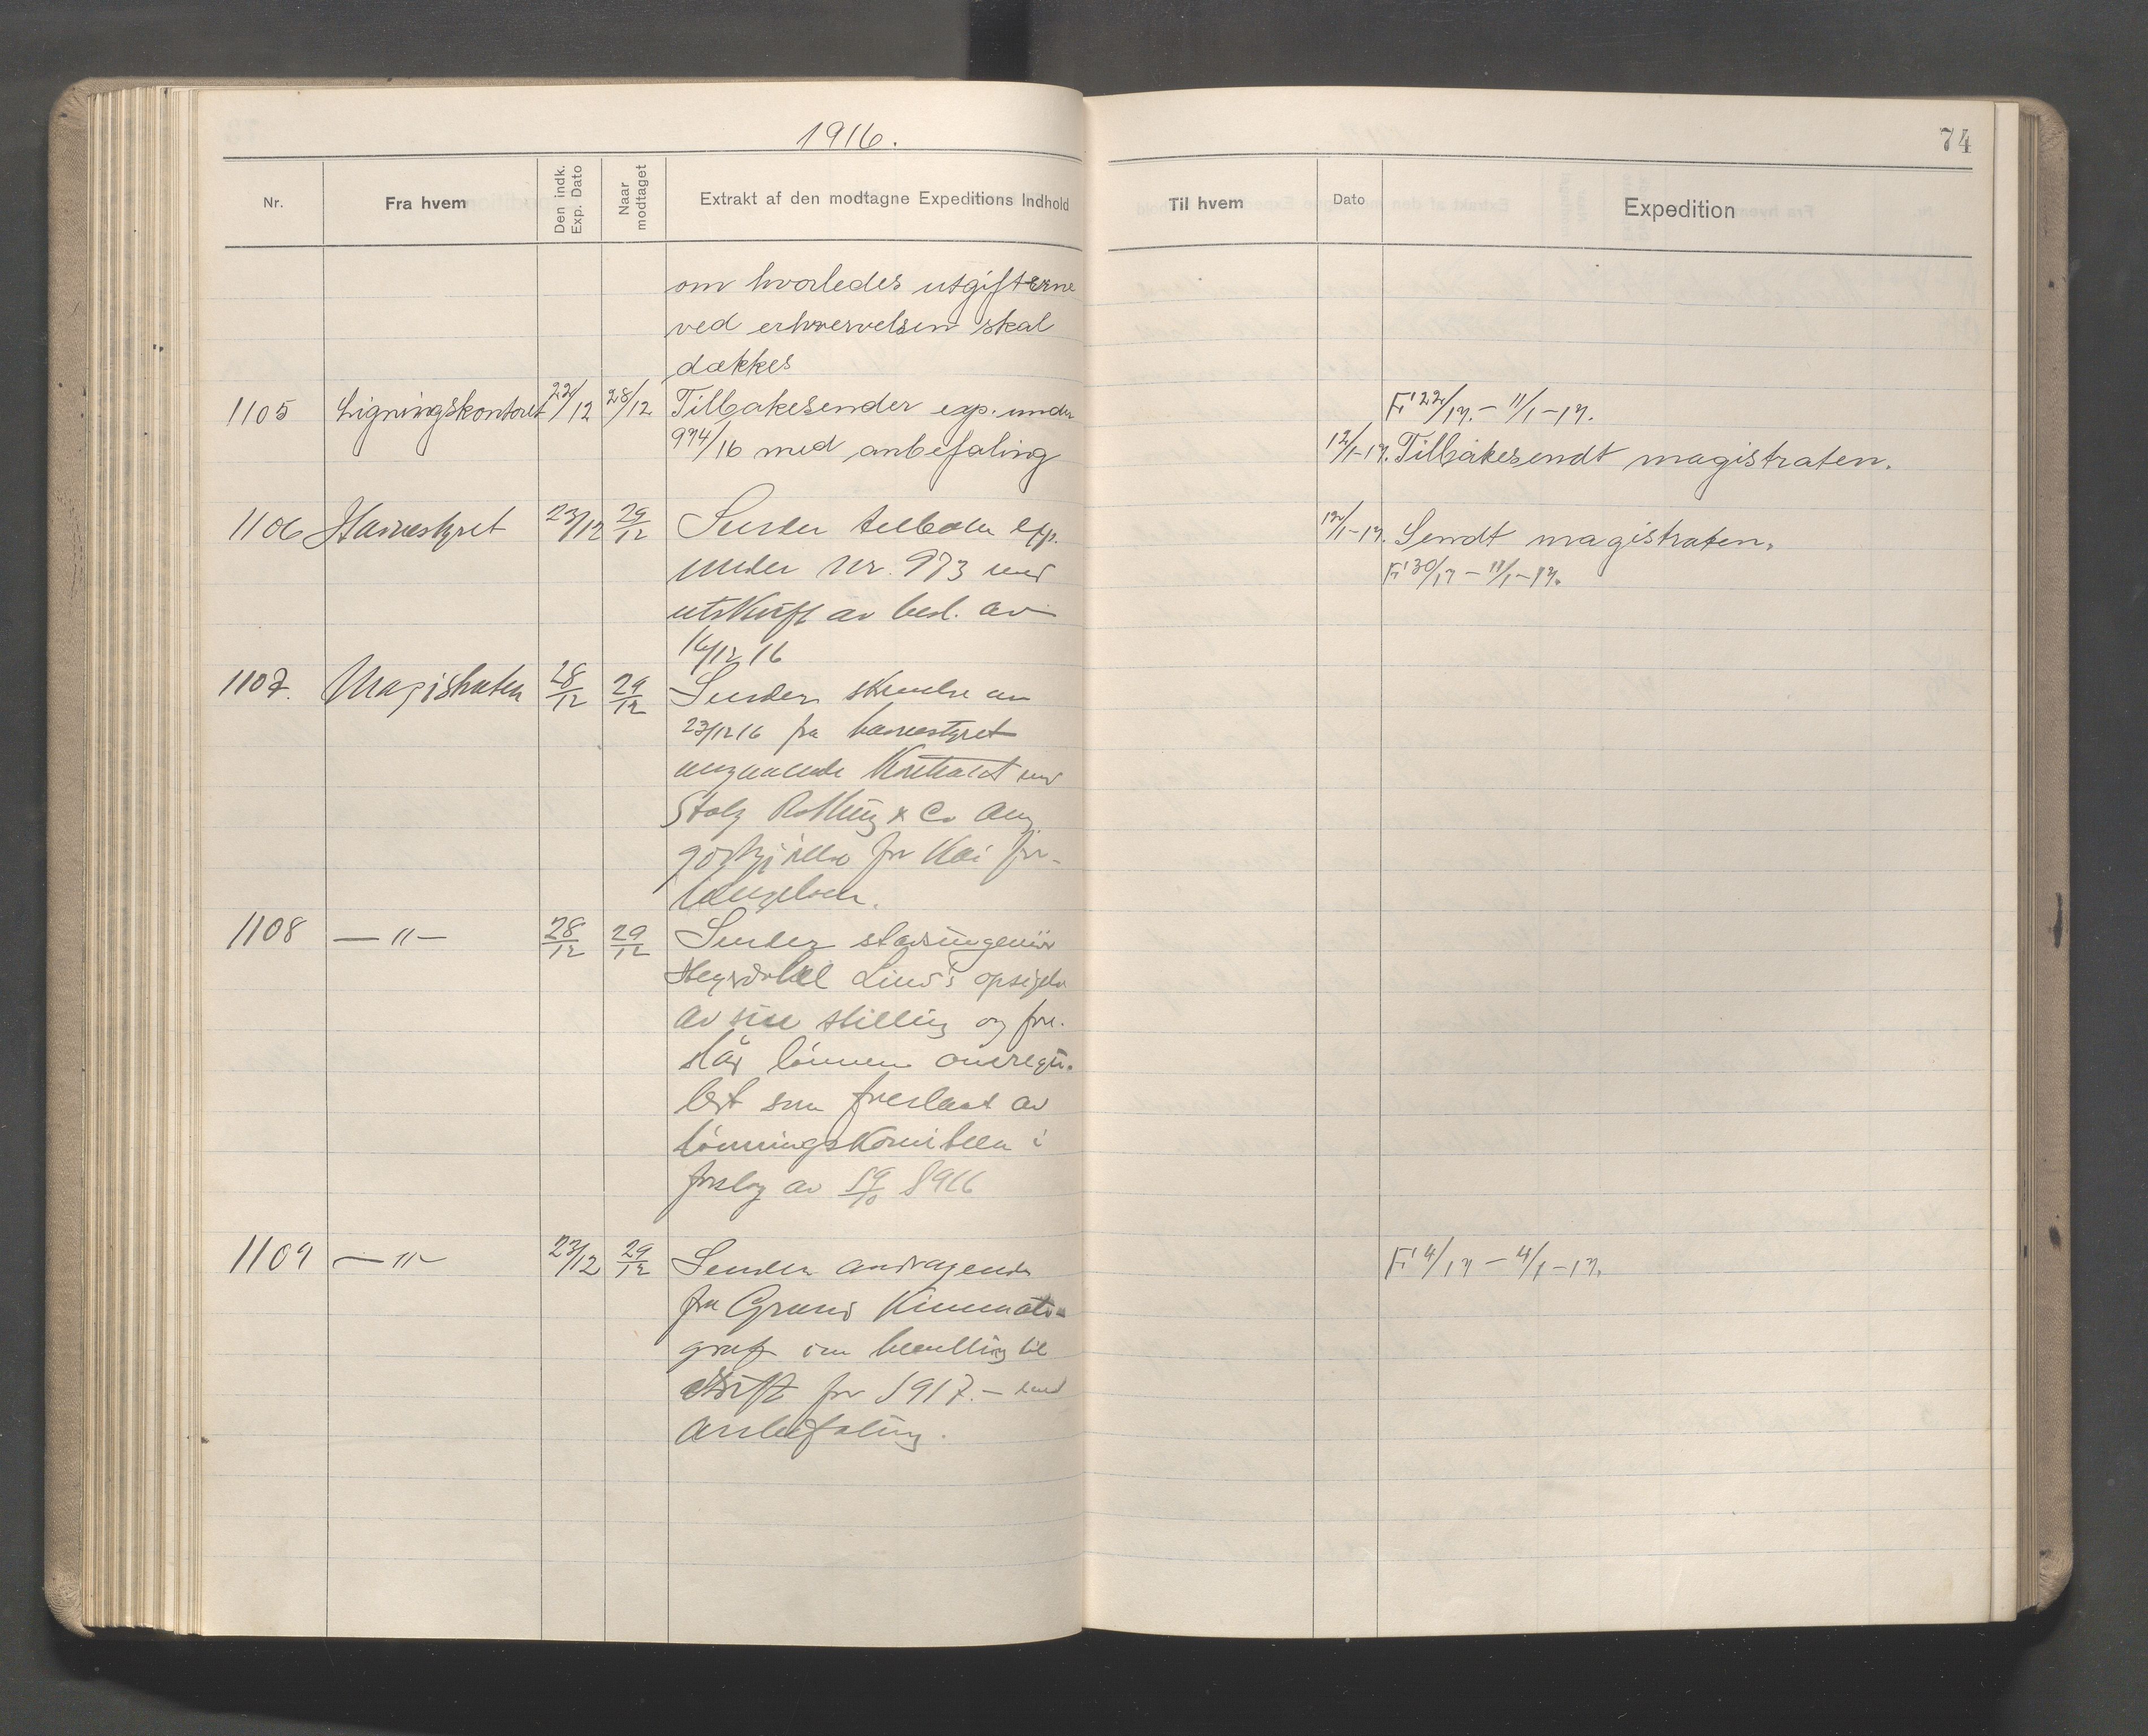 1916.
74
Nr.
Fra hvem
Den indk. Exp. Dato
Naar modtaget
Extrakt af den modtagne Expeditions Indhold
Til hvem
Dato
Expedition
om hvorledes utgifterne
ved erhvervelsen skal
dækkes
1105 Ligningskontoret 22/12 28/12 Tilbakesender exp. under
974/16 med anbefaling
F' 22/17. - 11/1-17.
12/1-17. Tilbakesendt magistraten.
1106 Havnestyret 23/12 29/12 Sender tilbake exp.
under Nr. 973 med
utskrift av besl. av
16/12 16
12/1-17. Sendt magistraten.
F' 30/17 - 11/1-17.
1107. Magistraten 28/12 29/12 Sender skrivelse av
23/12 16 fra havnestyret
angaaende Kontrakt med
Stolz Røthing & Co ang.
for Kai for-
længelsen.
1108 — " — 28/12 29/12 Sender stadsingeniør
Lind's opsigelse
av sin stilling og fore-
slår lønnen omregu-
lert som foreslaat av
lønningskomiteen i
forslag av 19/10 1916
1109 — " — 23/12 29/12 Sender andragende
fra Grand Kinemato-
graf om bevilling til
drift for 1917. - med
anbefaling.
F' 4/17 - 4/1-17.